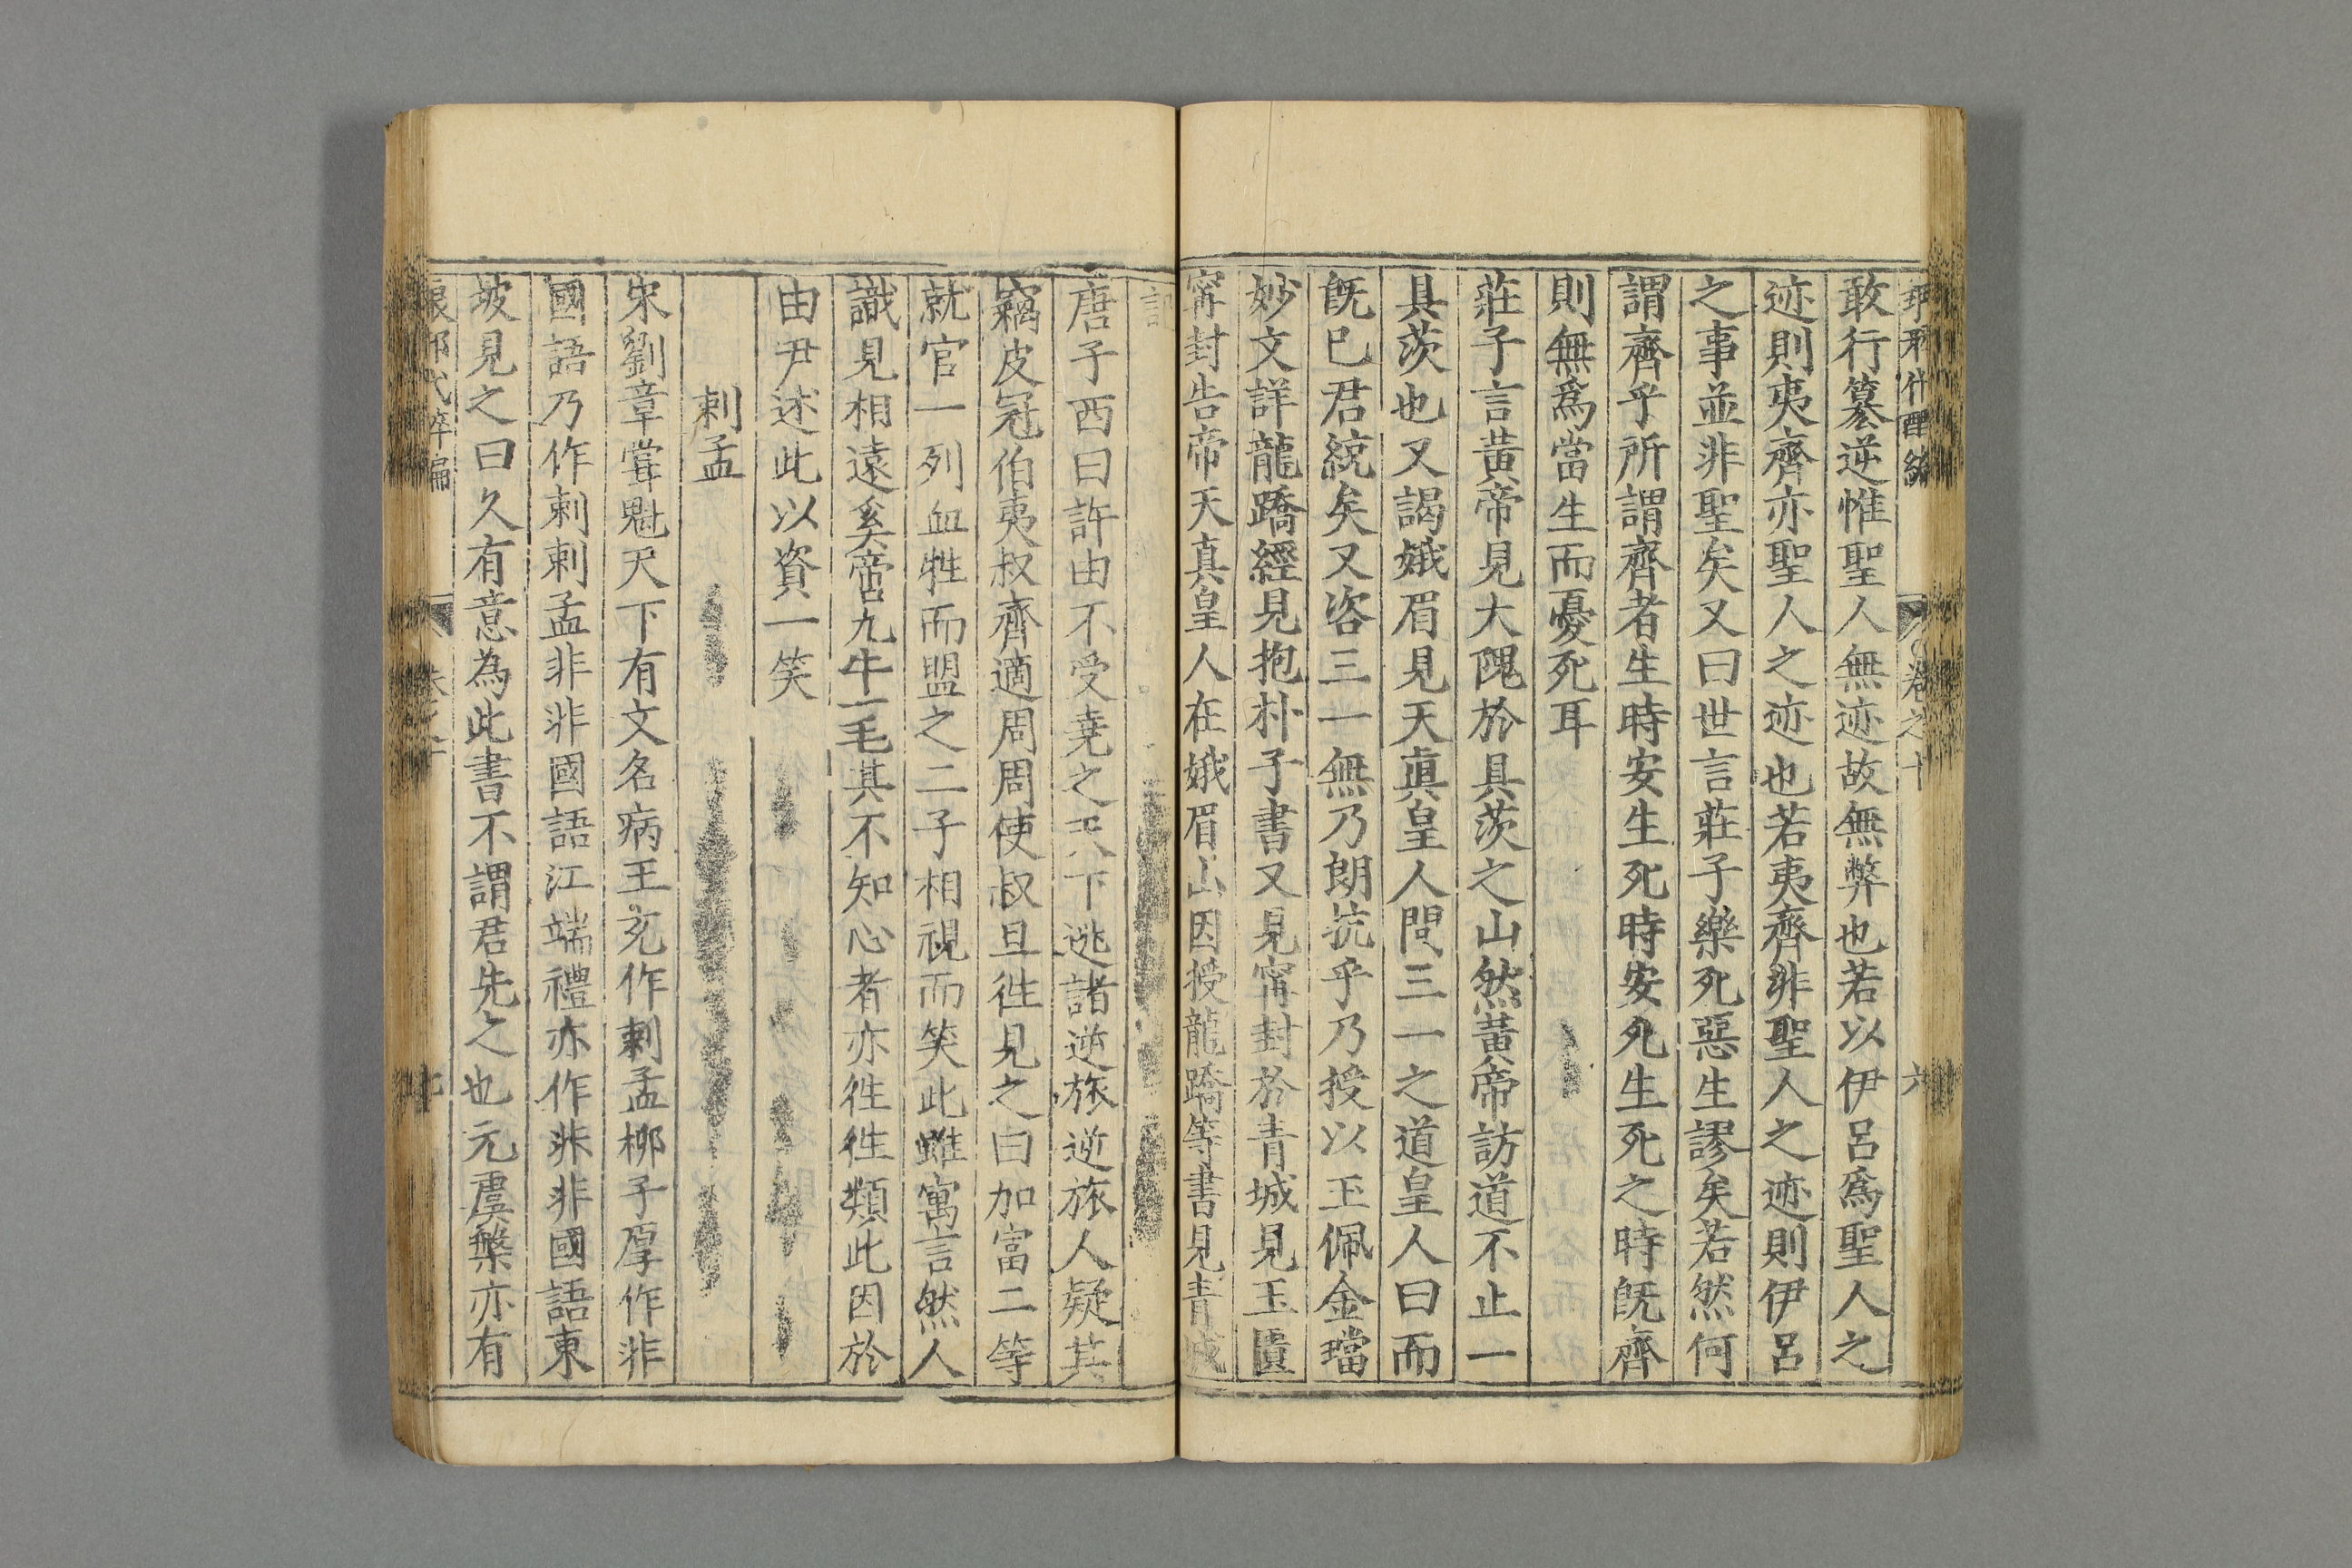 卷之十
六
敢行篡逆惟聖人無迹故無弊也若以伊呂爲聖人之
迹則夷齊亦聖人之迹也若夷齊非聖人之迹則伊呂
之事並非聖矣又曰世言莊子樂死惡生謬矣若然何
謂齊乎所謂齊者生時安生死時安死生死之時旣齊
則無爲當生而憂死耳
莊子言黃帝見大隗於具茨之山然黃帝訪道不止一
具茨也又謁娥眉見天眞皇人問三一之道皇人曰而
旣已君統矣又咨三一無乃朗抗乎乃授以玉佩金璫
妙文詳龍蹻經見抱朴子書又見甯封於青城見玉匱
甯封告帝天真皇人在娥眉山因授龍蹻等書見青城
記
唐子西曰許由不受堯之天下逃諸逆旅逆旅人疑其
竊皮冠伯夷叔齊適周周使叔旦徃見之曰加富二等
就官一列血牲而盟之二子相視而笑此雖寓言然人
識見相遠奚啻九牛一毛其不知心者亦徃徃類此因於
由尹述此以資一笑
刺孟
宋劉章嘗魁天下有文名病王充作刺孟栁子厚作非
國語乃作刺刺孟非非國語江端禮亦作非非國語東
坡見之曰久有意為此書不謂君先之也元虞槃亦有
琅邪代醉編